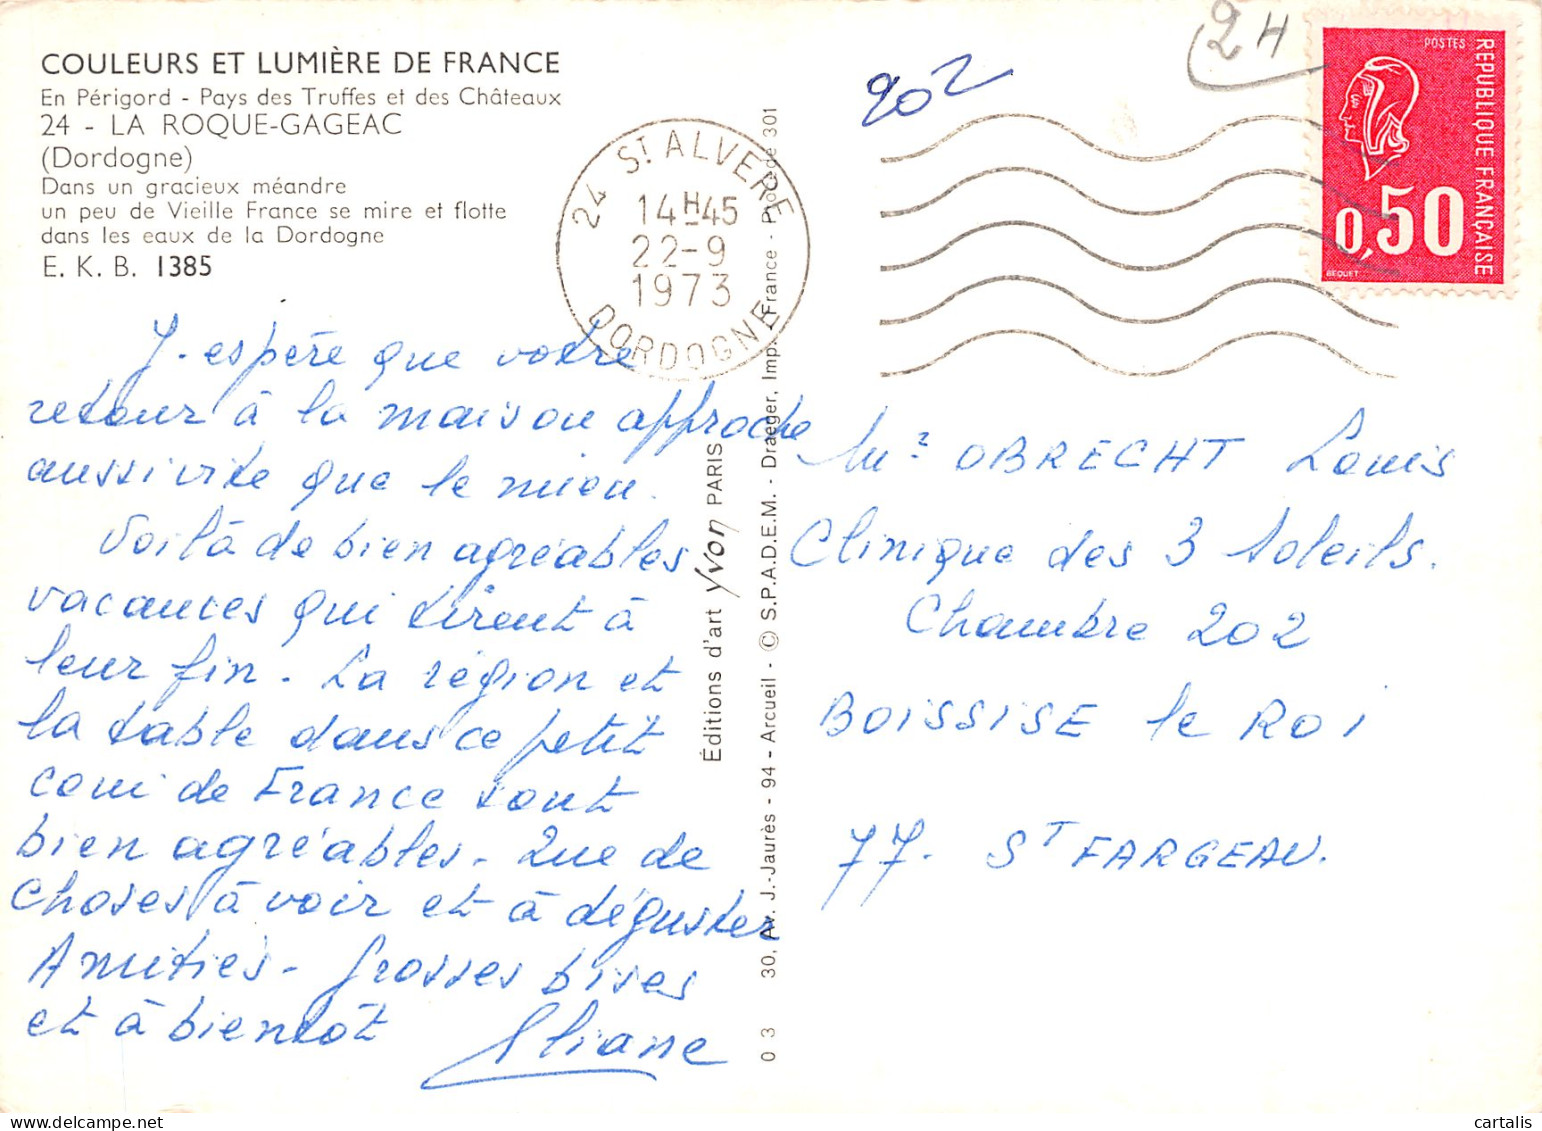 COULEURS ET LUMIÈRE DE FRANCE
En Périgord - Pays des Truffes et des Châteaux
24 - LA ROQUE-GAGEAC
(Dordogne)
Dans un gracieux méandre
un peu de Vieille France se mire et flotte
dans les eaux de la Dordogne
E. K. B. 1385
24 ST ALVERE
14H45
22-9
1973
DORDOGNE
202
2H
POSTES
REPUBLIQUE FRANÇAISE
0,50
BEQUET
J. espère que votre
retour à la maison approche
aussi vite que le mien.
Voilà de bien agréables
vacances qui tirent à
leur fin. La région et
la table dans ce petit
coin de France sont
bien agréables. Que de
choses à voir et à déguster
Amitiés - Grosses bises
et à bientôt Eliane
Éditions d'art Yvon PARIS
0 3 30, Av. J.-Jaurès - 94 - Arcueil - © S.P.A.D.E.M. - Draeger, Imp. France - Photo de 301
Mr OBRECHT Louis
Clinique des 3 Soleils.
Chambre 202
BOISSISE le ROI
77. ST FARGEAU.
cartalis